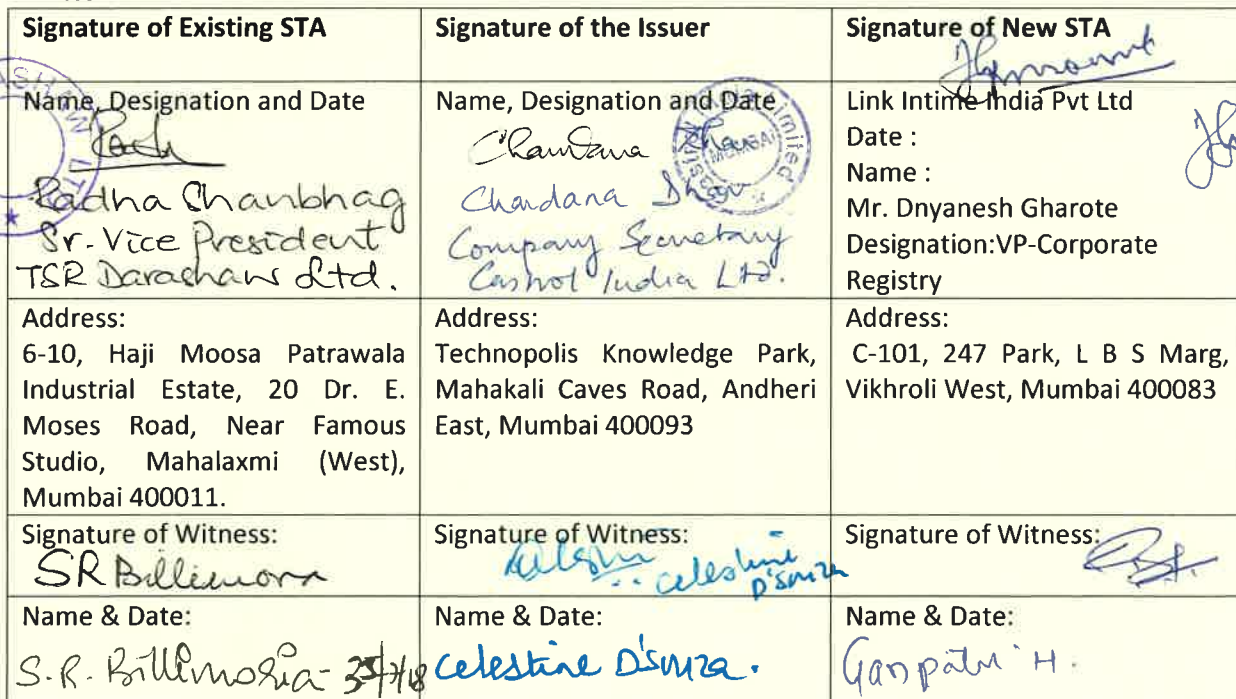 Signature of Existing STA
Signature of the Issuer
Signature of New STA
Name, Designation and Date
Radha Shanbhag
Sr. Vice President
TSR Darashaw Ltd.
Name, Designation and Date
Chandana
Chandana
Company Secretary
Castrol India Ltd.
Link Intime India Pvt Ltd
Date :
Name :
Mr. Dnyanesh Gharote
Designation:VP-Corporate
Registry
Address:
6-10, Haji Moosa Patrawala
Industrial Estate, 20 Dr. E.
Moses Road, Near Famous
Studio, Mahalaxmi (West),
Mumbai 400011.
Address:
Technopolis Knowledge Park,
Mahakali Caves Road, Andheri
East, Mumbai 400093
Address:
C-101, 247 Park, L B S Marg,
Vikhroli West, Mumbai 400083
Signature of Witness:
SR Billimoria
Signature of Witness:
celestine
D'souza
Signature of Witness:
Name & Date:
S.R. Billimoria
Name & Date:
Celestine D'souza.
Name & Date:
Ganpati H.